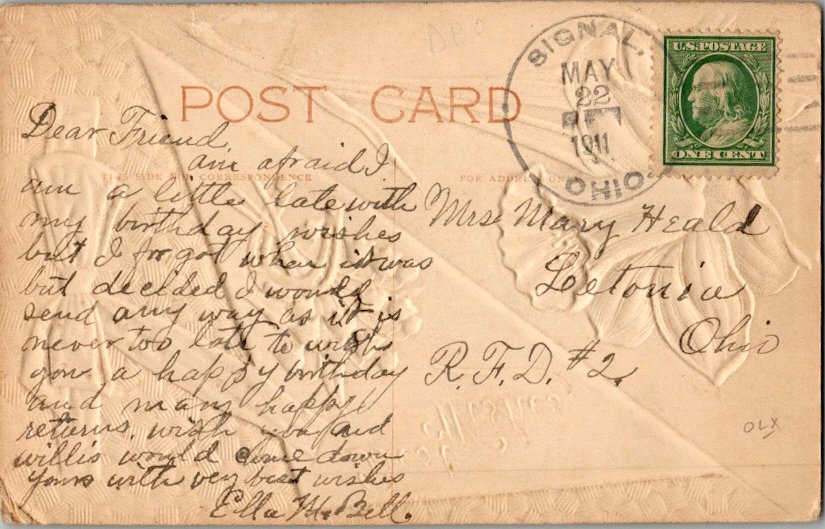 SIGNAL,
MAY
22
1911
OHIO.
U.S. POSTAGE
ONE CENT
POST CARD
THE SIDE FOR CORRESPONDENCE
FOR ADDRESS ONLY
Dear Friend
am afraid I
am a little late with
my birthday wishes
but I forgot when it was
but decided I would
send any way as it is
never too late to wish
you a happy birthday
and many happy
returns. wish you and
willis would come down
yours with very best wishes
Ella McBell.
Mrs Mary Heald
Letonia
Ohio
R.F.D. #2.
OLX